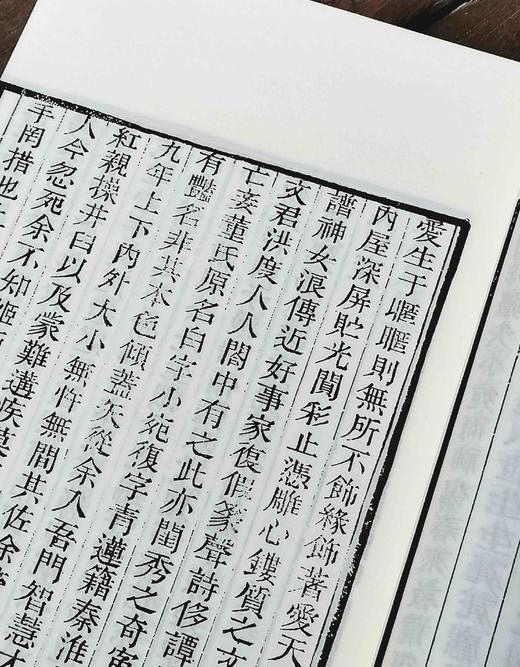 愛生于暱暱則無所不飾緣飾著愛天
內屋深屏貯光闃彩止憑雕心鏤質之文
譜神女浪傳近好事家復假篆聲詩侈譚
文君洪度人人閣中有之此亦閨秀之奇冤
亡妾董氏原名白字小宛復字青蓮籍秦淮
有豔名非其本色傾蓋矢從余入吾門智慧才
九年上下內外大小無忤無間其佐余
紅親操井臼以及蒙難遘疾莫
人今忽死余不知姬
手罔措也